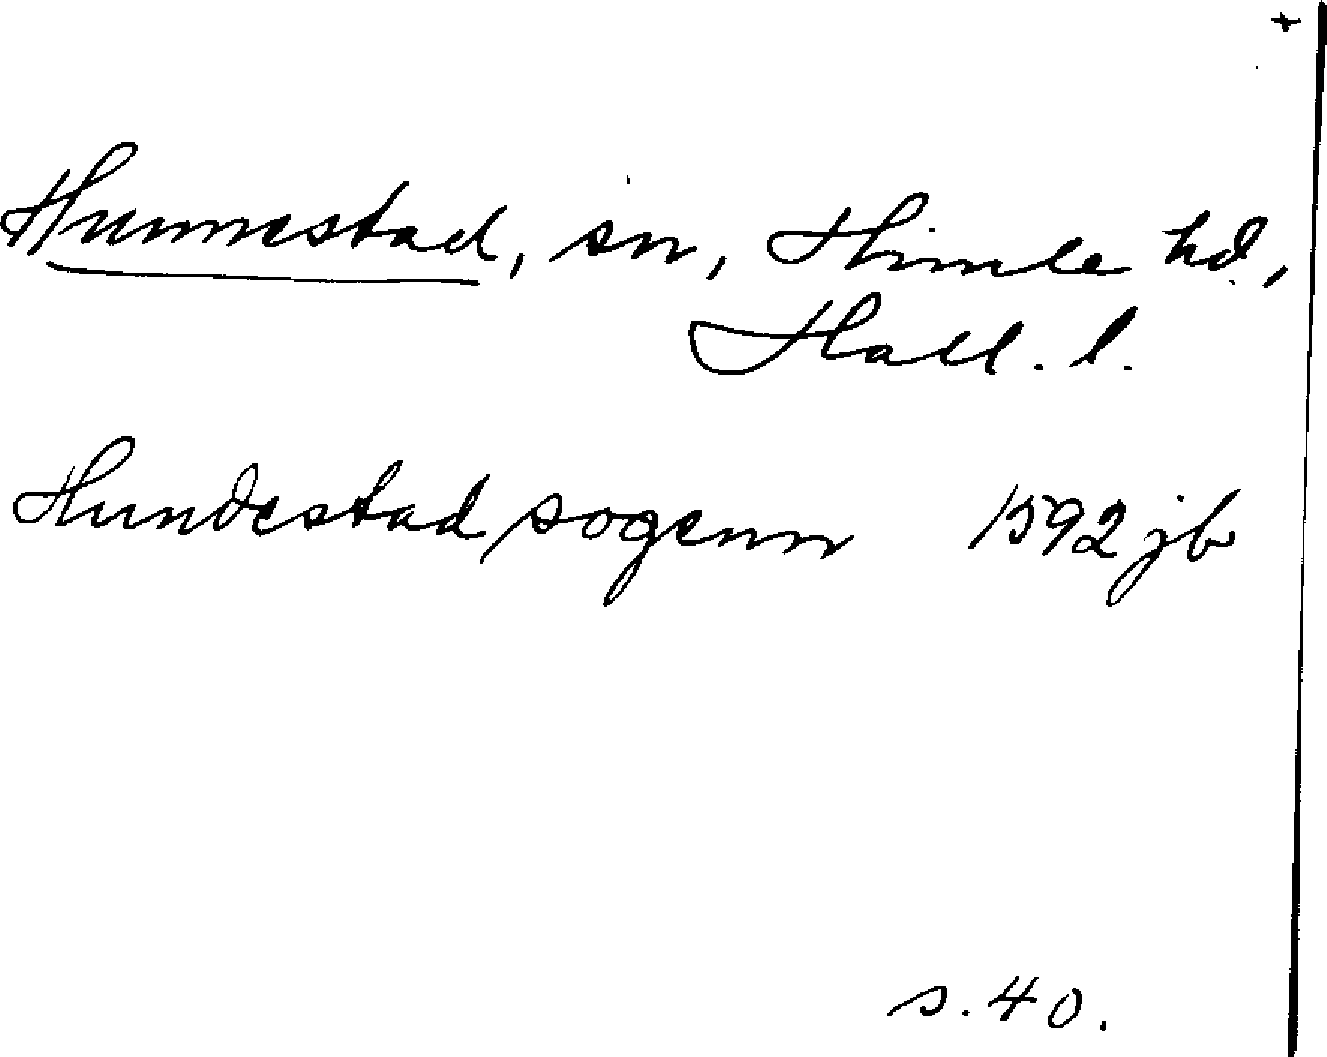 +
Hunnestad, sn, Himle hd,
Hall. l.
Hundestad sogenn 1592 jb
s. 40.